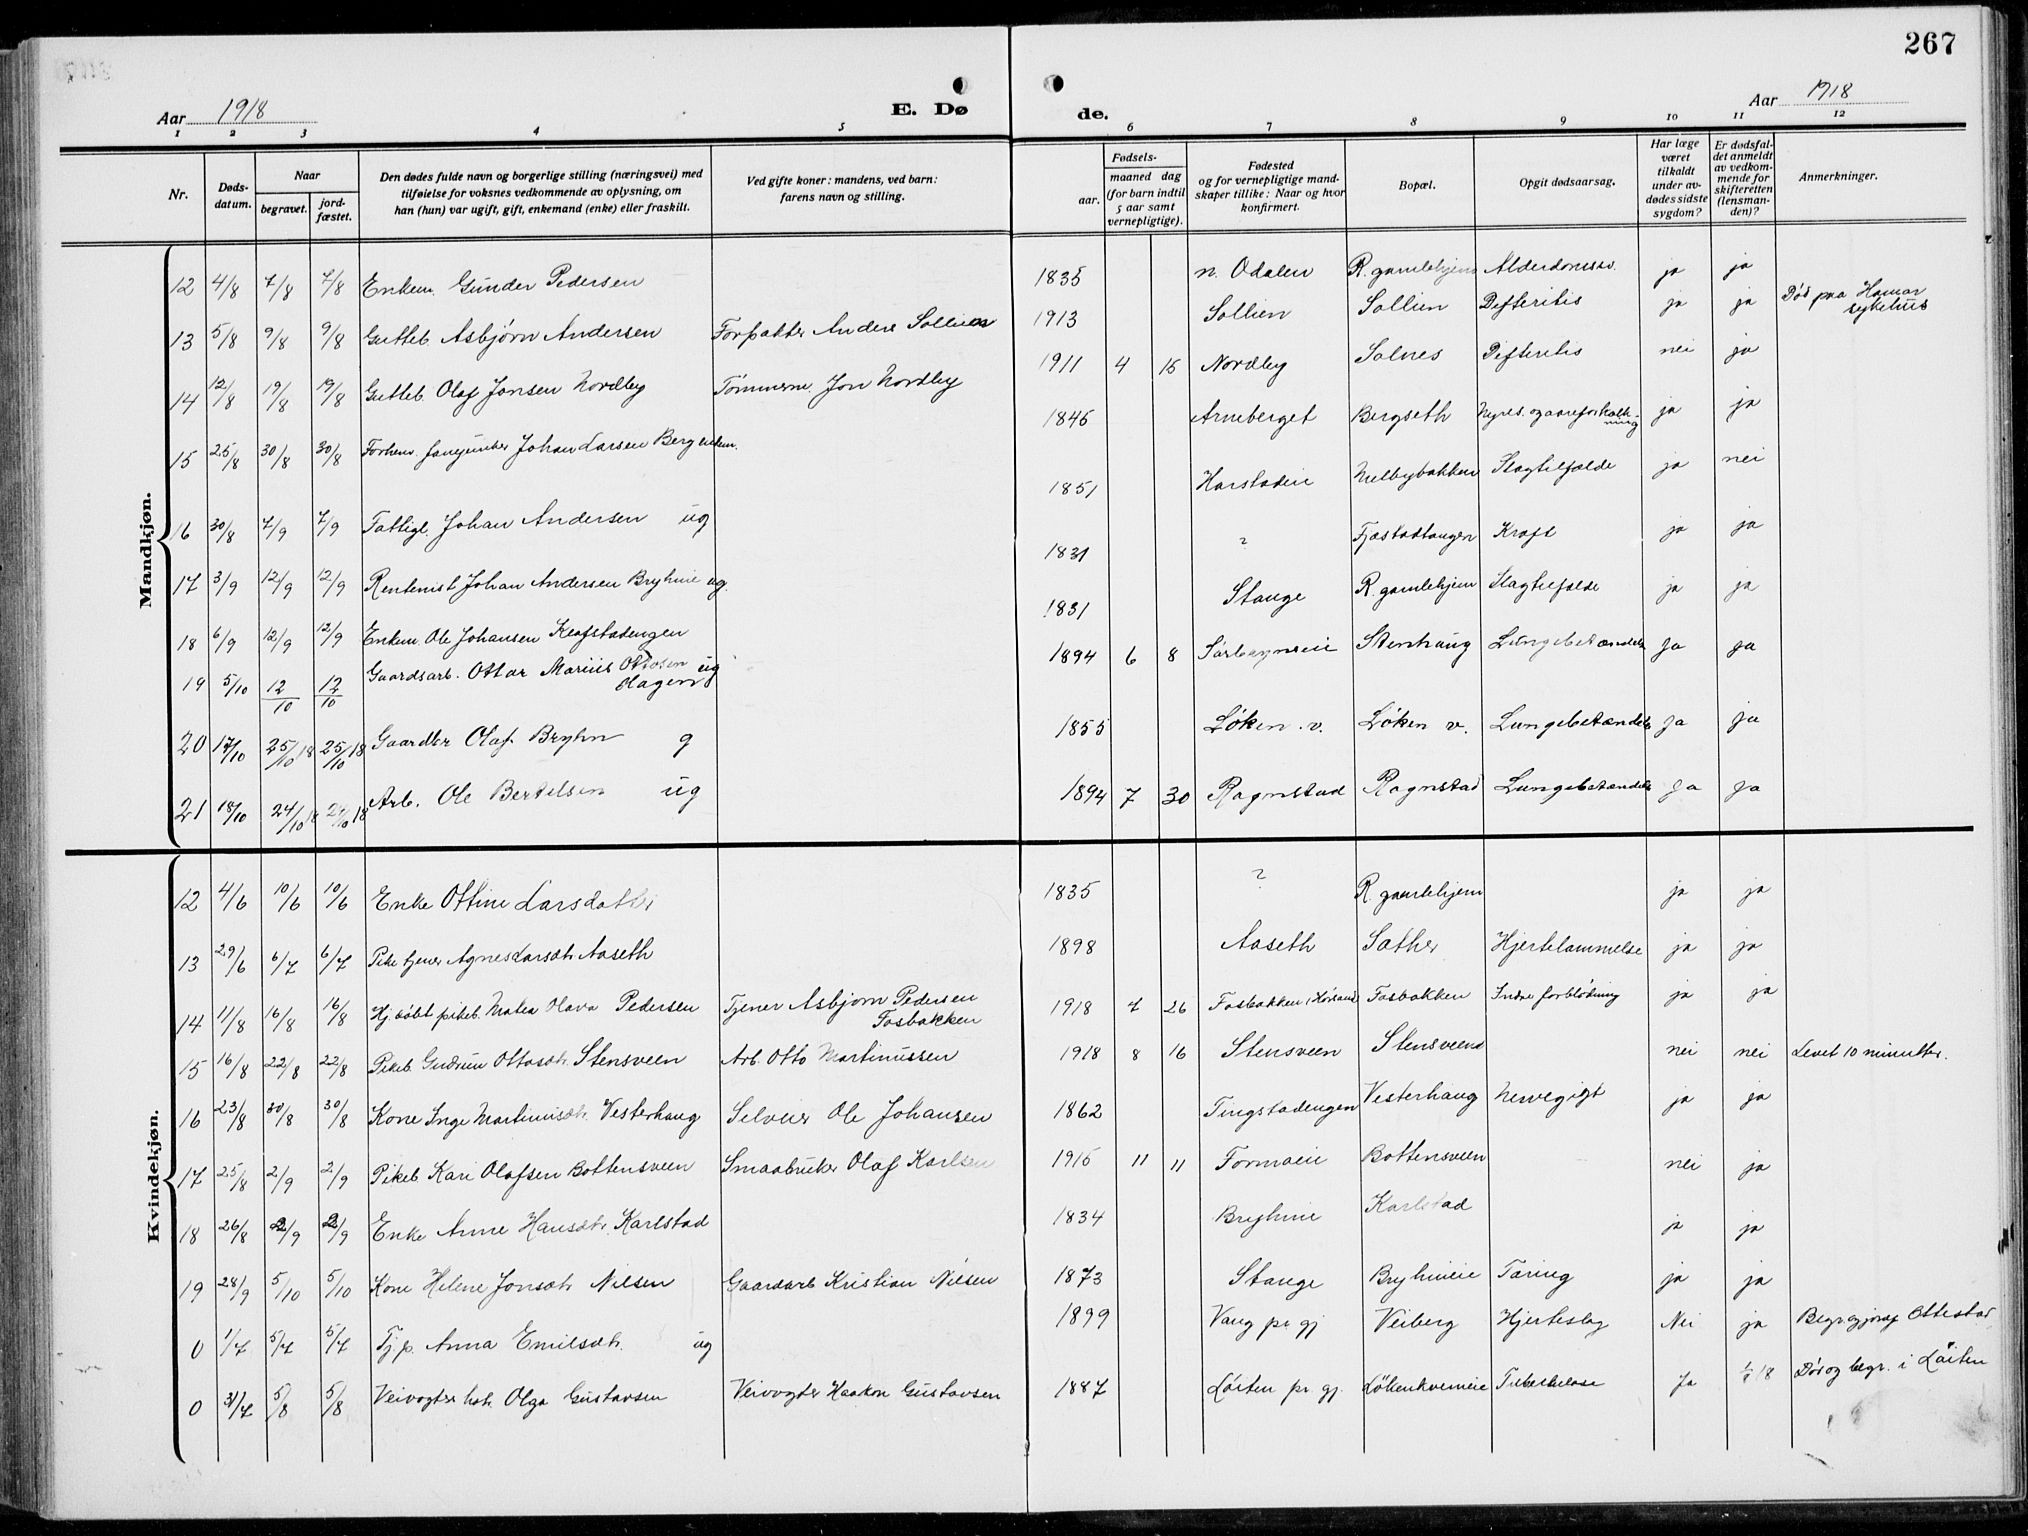 267
Aar 1918 E. Dø de. Aar 1918
1 2 3 4 5 6 7 8 9 10 11 12
Nr. Døds-datum. Naar begravet. jord-fæstet. Den dødes fulde navn og borgerlige stilling (næringsvei) med tilføielse for voksnes vedkommende av oplysning, om han (hun) var ugift, gift, enkemand (enke) eller fraskilt. Ved gifte koner: mandens, ved barn: farens navn og stilling. Fødsels- aar. maaned dag (for barn indtil 5 aar samt vernepligtige). Fødested og for vernepligtige mand-skaper tillike: Naar og hvor konfirmert. Bopæl. Opgit dødsaarsag. Har læge været tilkaldt under av-dødes sidste sygdom? Er dødsfal-det anmeldt av vedkom-mende for skifteretten (lensman-den)? Anmerkninger.
Mandkjøn.
12 4/8 7/8 7/8 Enkem. Gunder Pedersen 1835 n. Odalen R. gamlehjem ja ja
13 5/8 9/8 9/8 Gutteb. Asbjørn Andersen Forpakter Anders Sollien 1913 Sollien Sollien Difteritis ja ja Død paa Hamar sykehus
14 12/8 19/8 19/8 Gutteb. Olaf Jonsen Nordby Tømmerm. Jon Nordby 1911 4 15 Nordby Solnes Difteritis nei ja
15 25/8 30/8 30/8 Forhenv. fanejunker Johan Larsen Berg enkem. 1845 Arneberget Bergseth Nyres. og aareforkalkning ja ja
16 30/8 7/9 7/9 Fattigl. Johan Andersen ug 1851 Harstadeie Melbybakken Slagtilfælde ja nei
17 3/9 12/9 12/9 Rentenist Johan Andersen Bryhnie ug. 1831 ? Fjæstadtangen Kræft ja ja
18 6/9 12/9 12/9 Enkem. Ole Johansen 1831 Stange R. gamlehjem Slagtilfælde ja ja
19 5/10 12/10 12/10 Gaardsarb. Ottar Marius Ottosen Hagen ug 1894 6 8 Stenhaug Lungebetændelse Ja Ja
20 17/10 25/10 18 25/10 18 Gaardbr Olaf Bryhn g 1855 Løken v. Løken v. Lungebetændelse Ja Ja
21 18/10 24/10 18 24/10 18 Arb. Ole Bertelsen ug 1894 7 30 Ragnstad Ragnstad Lungebetændelse Ja Ja
Kvindekjøn.
12 4/6 10/6 10/6 Enke Ottine Larsdatter 1835 ? R. gamlehjem ja ja
13 29/6 6/7 6/7 Pike tjener Agnes Larsdtr Aaseth 1898 Aaseth Sæther Hjertelammelse ja ja
14 11/8 16/8 16/8 Hj. døbt pikeb. Matea Olava Pedersen Tjener Asbjørn Pedersen Fosbakken 1918 7 26 Fosbakken Fosbakken Indre forblødning ja ja
15 16/8 22/8 22/8 Pikeb. Gudrun Ottosdtr. Stensveen Arb. Otto Martinussen 1918 8 16 Stensveen Stensveen nei nei Levet 10 minutter.
16 23/8 30/8 30/8 Kone Inge Martinusdtr. Vesterhaug Selveier Ole Johansen 1862 Tingstadengen Vesterhaug Nervegigt ja ja
17 25/8 2/9 2/9 Pikeb. Kari Olafsen Bottensveen Smaabruker Olaf Karlsen 1915 11 11 Formoeie Bottensveen nei ja
18 26/8 2/9 2/9 Enke Anne Hansdtr. Karlstad 1834 Bryhnie Karlstad ja ja
19 28/9 5/10 5/10 Kone Helene Jonsdtr Nilsen Gaardarb Kristian Nilsen 1873 Stange Bryhnieie Tæring ja ja
0 1/7 5/7 5/7 Tj. p. Anna Emilsdtr. ug 1899 Vang pr gj Veiberg Hjerteslag Nei ja Begr. gj. Ottestad
0 31/7 5/8 5/8 Veivogter hstr Olga Gustavsen Veivogter Haakon Gustavsen 1887 Løiten pr. gj. Tuberkulose Ja 1/8 18 Død og begr. i Løiten